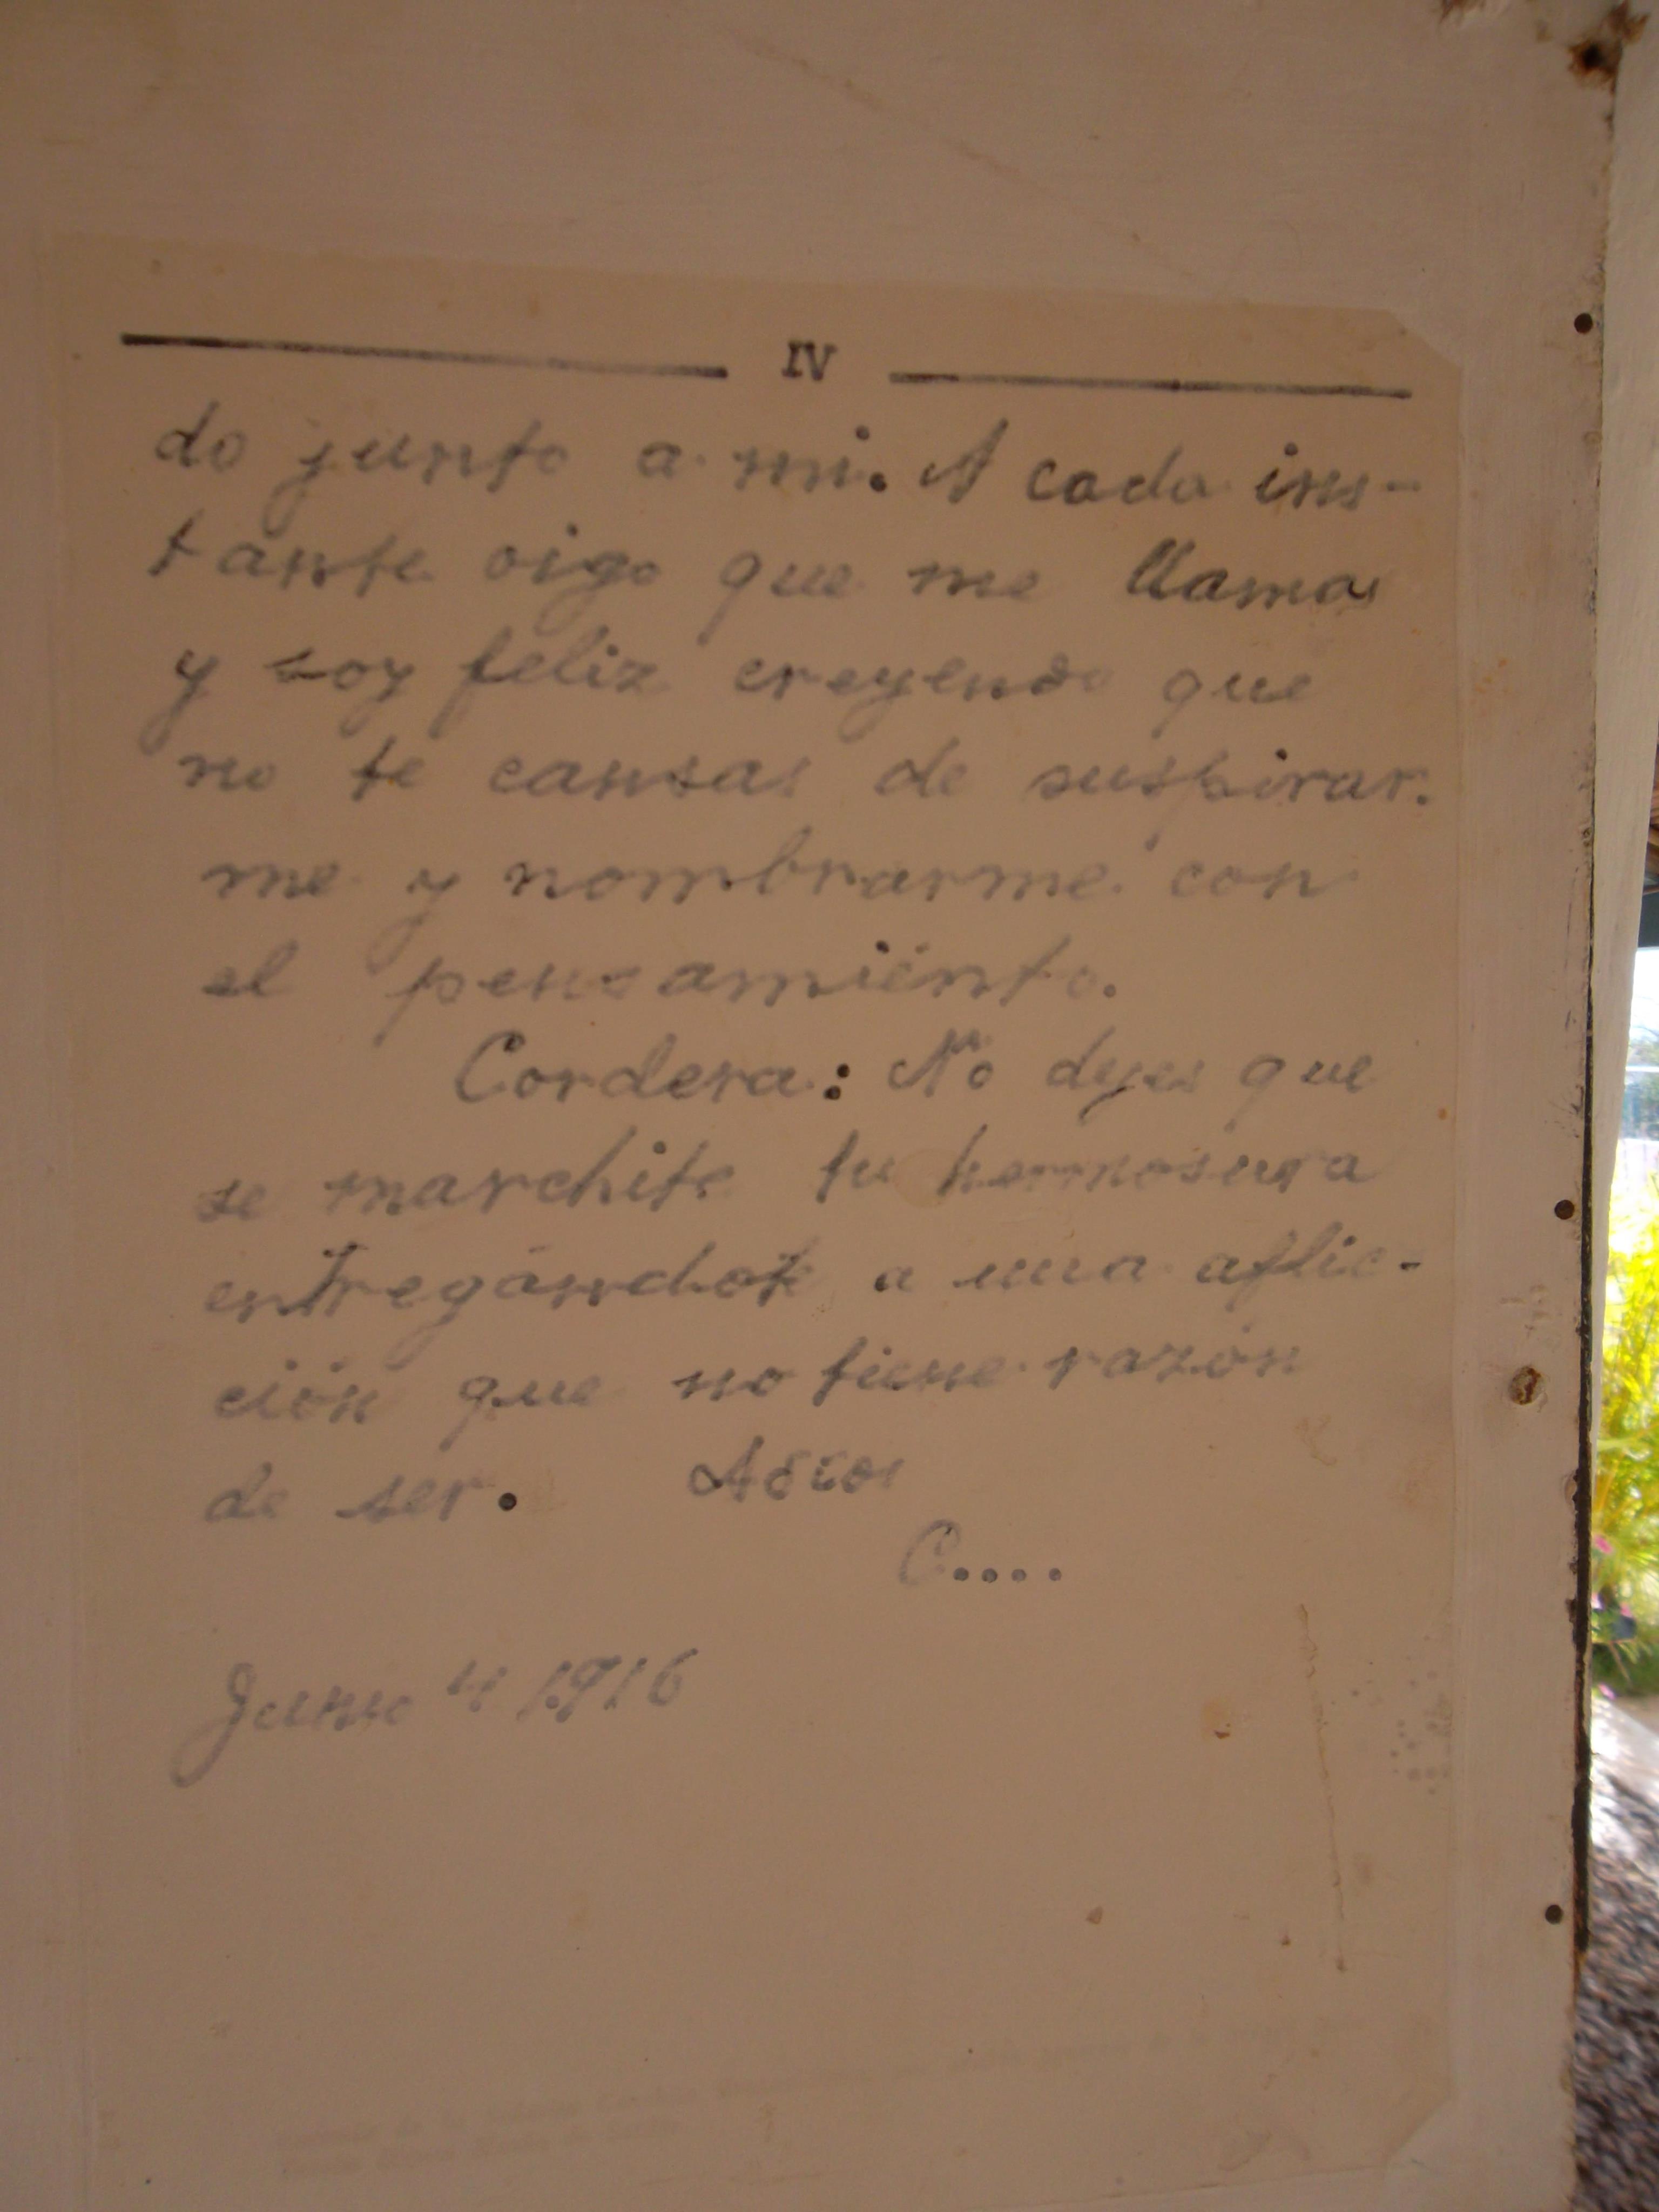 IV
do junto a mi. A cada ins-
tante oigo que me llamas
y soy feliz creyendo que
no te cansas de suspirar.
me y nombrarme con
el pensamiento.
Cordera: No dejes que
se marchite tu hermosura
entregándote a una aflic-
ción que no tiene razón
de ser.
C....
Junio 4 1916